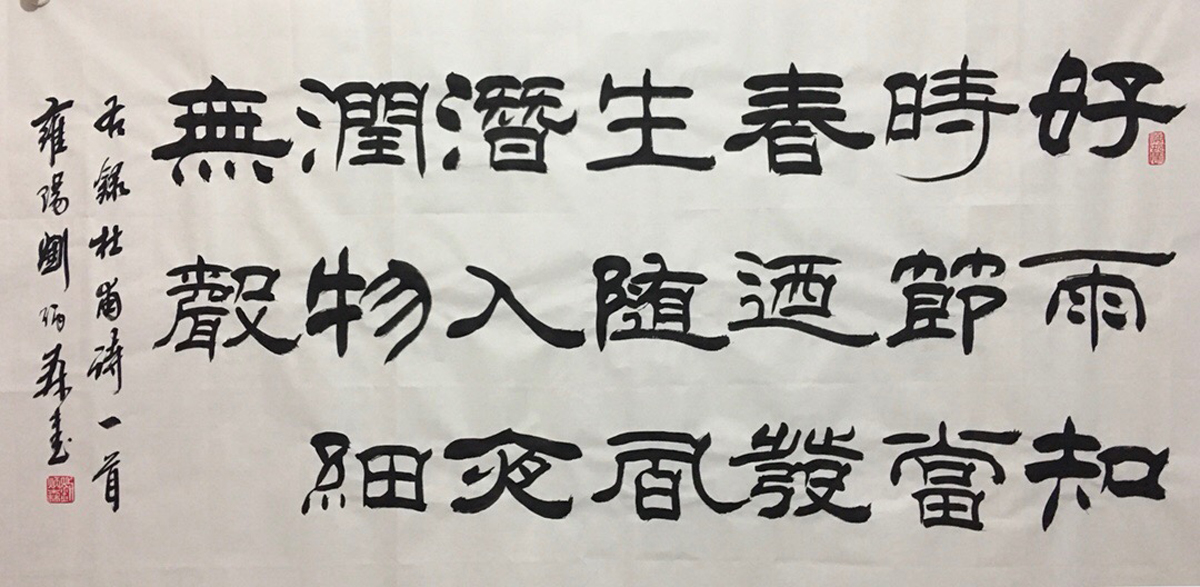 好雨知
時節當
春迺發
生随風
潛入夜
潤物細
無聲
右錄杜甫詩一首
雍陽劉炳森書